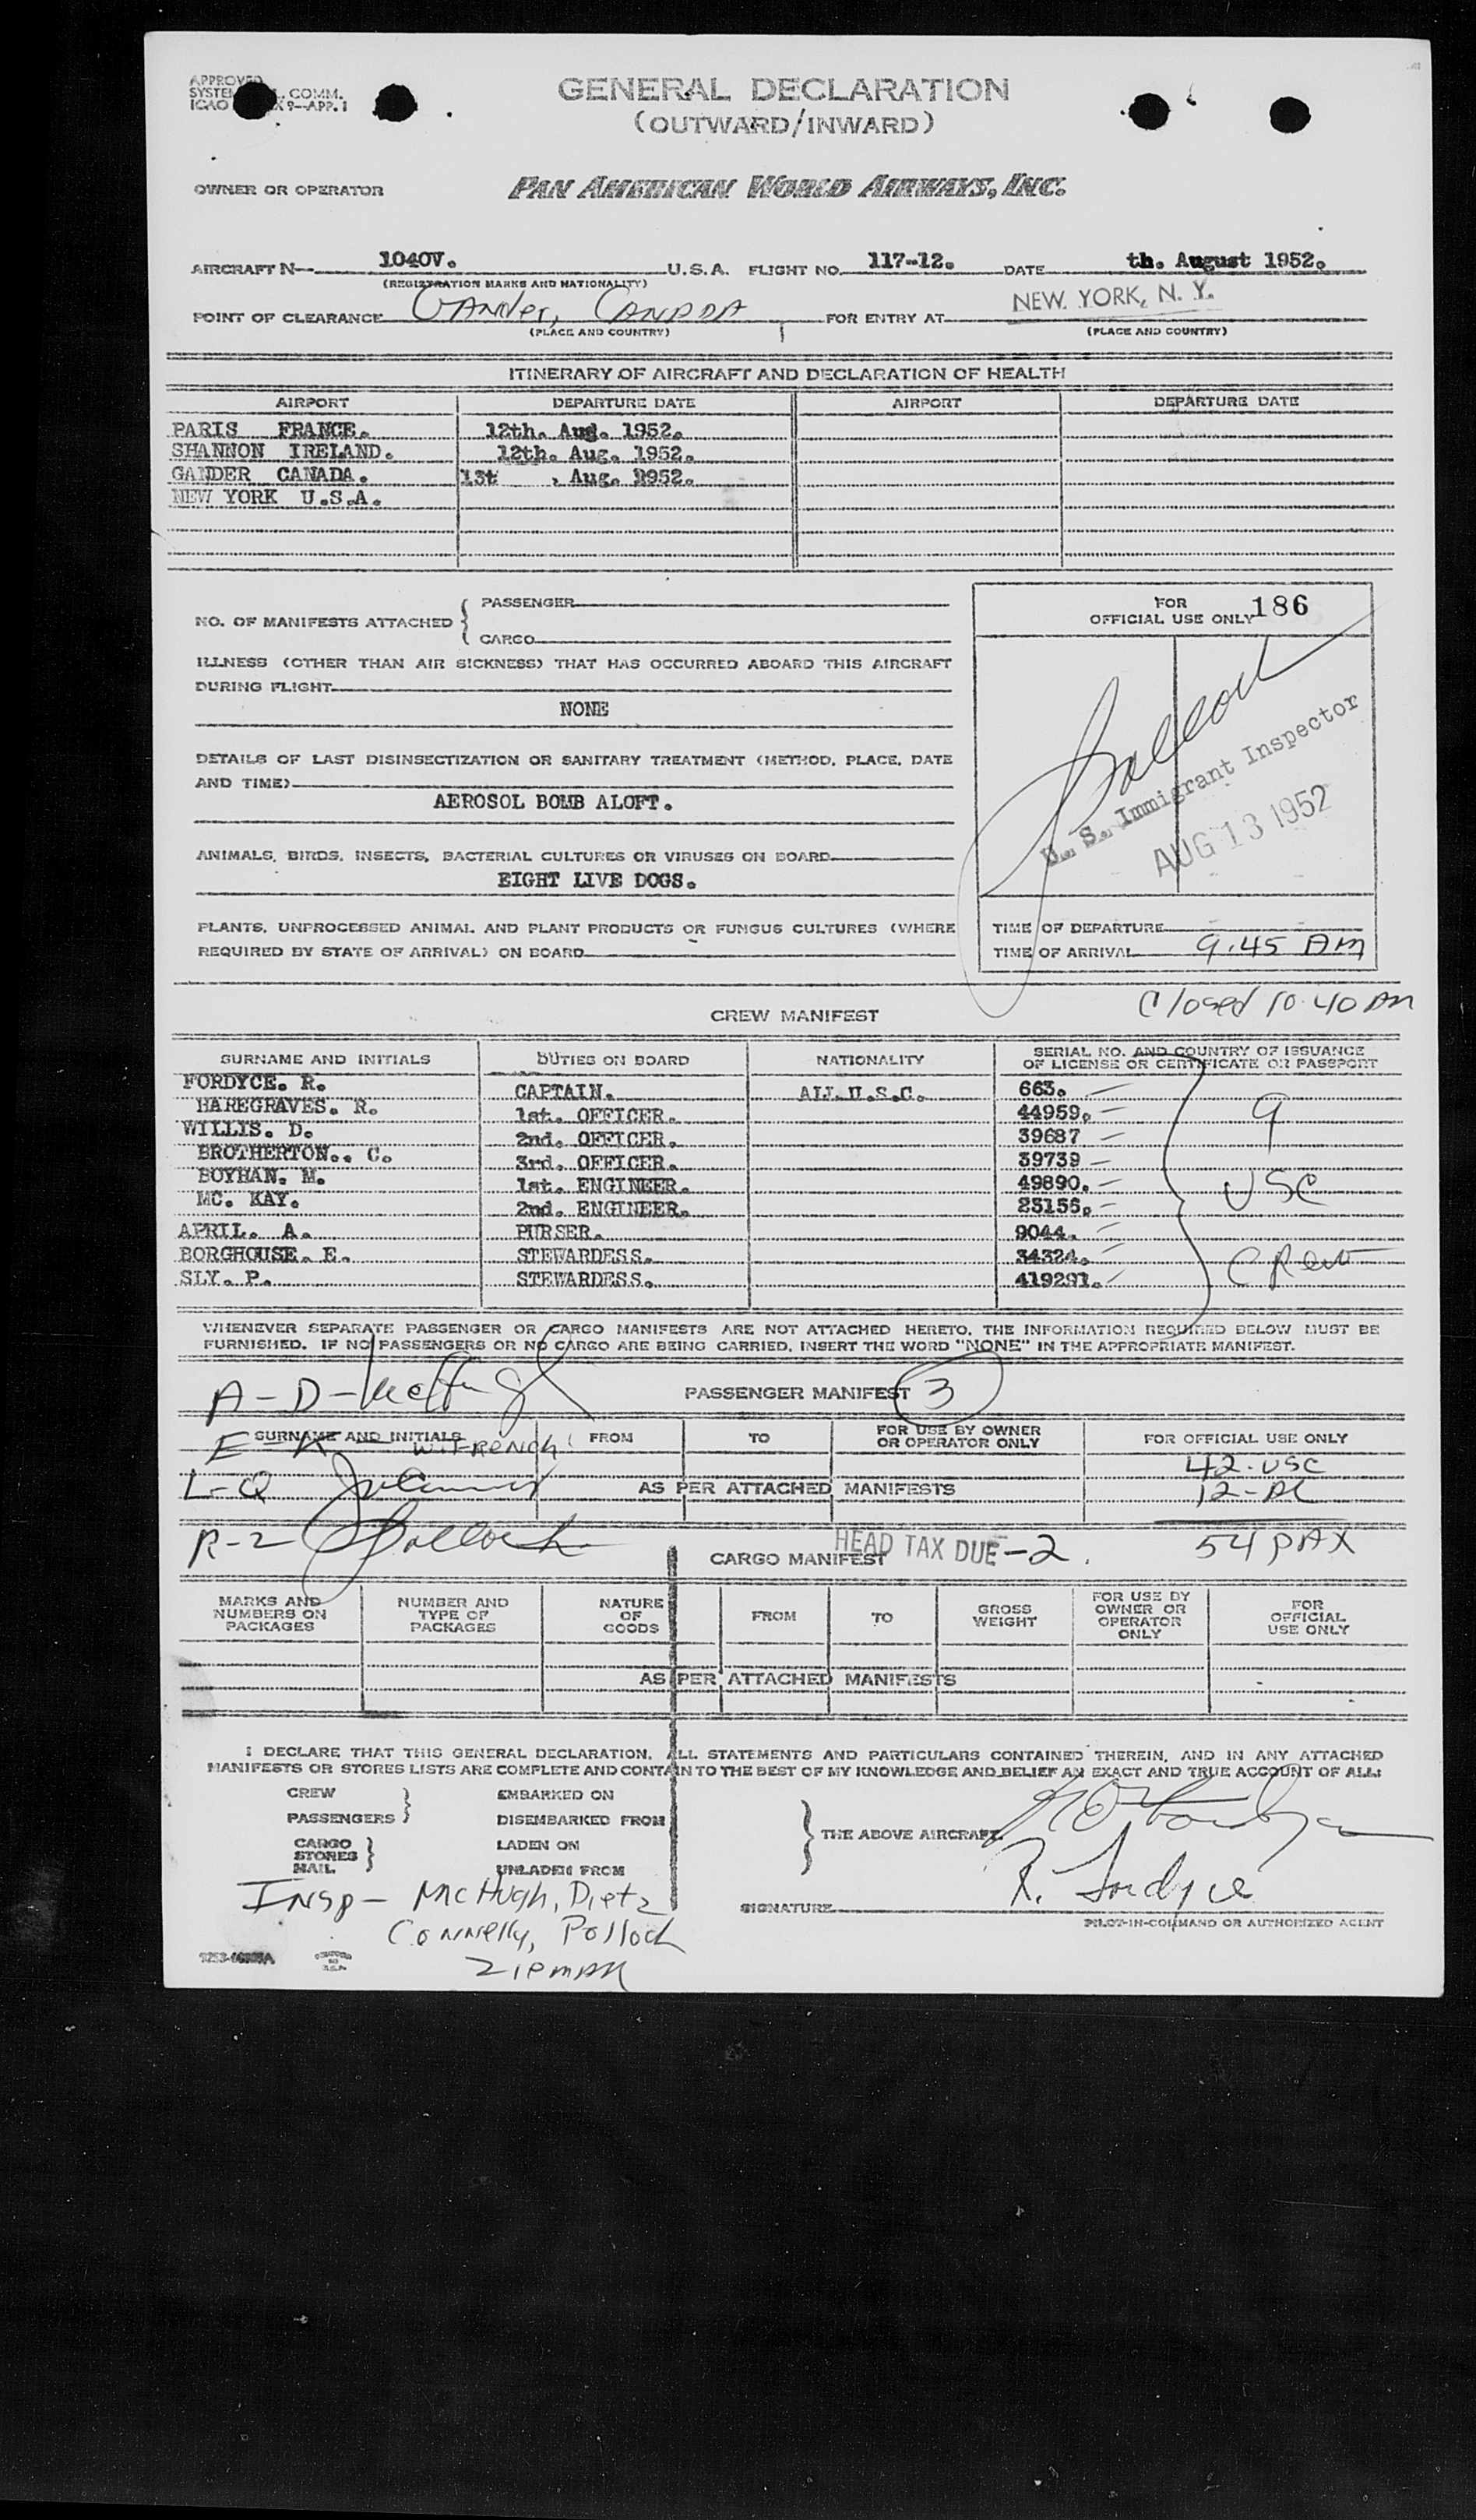 APPROVED
SYSTEM COMM.
ICAO 9--APP. 1
GENERAL DECLARATION
(OUTWARD/INWARD)
OWNER OR OPERATOR PAN AMERICAN WORLD AIRWAYS, INC.
AIRCRAFT N- 1040V. U.S.A. FLIGHT NO. 117-12. DATE th. August 1952.
(REGISTRATION MARKS AND NATIONALITY)
POINT OF CLEARANCE Gander, Canada FOR ENTRY AT NEW YORK, N. Y.
(PLACE AND COUNTRY) (PLACE AND COUNTRY)
ITINERARY OF AIRCRAFT AND DECLARATION OF HEALTH
AIRPORT DEPARTURE DATE AIRPORT DEPARTURE DATE
PARIS FRANCE. 12th. Aug. 1952.
SHANNON IRELAND. 12th. Aug. 1952.
GANDER CANADA. 13t , Aug. 1952.
NEW YORK U.S.A.
NO. OF MANIFESTS ATTACHED { PASSENGER
CARGO
FOR OFFICIAL USE ONLY 186
ILLNESS (OTHER THAN AIR SICKNESS) THAT HAS OCCURRED ABOARD THIS AIRCRAFT
DURING FLIGHT
NONE
DETAILS OF LAST DISINSECTIZATION OR SANITARY TREATMENT (METHOD, PLACE, DATE
AND TIME)
AEROSOL BOMB ALOFT.
Pollock
U. S. Immigrant Inspector
AUG 13 1952
ANIMALS, BIRDS, INSECTS, BACTERIAL CULTURES OR VIRUSES ON BOARD
EIGHT LIVE DOGS.
PLANTS, UNPROCESSED ANIMAL AND PLANT PRODUCTS OR FUNGUS CULTURES (WHERE
REQUIRED BY STATE OF ARRIVAL) ON BOARD
TIME OF DEPARTURE
TIME OF ARRIVAL 9.45 AM
Closed 10.40 AM
CREW MANIFEST
SURNAME AND INITIALS DUTIES ON BOARD NATIONALITY SERIAL NO. AND COUNTRY OF ISSUANCE
OF LICENSE OR CERTIFICATE OR PASSPORT
FORDYCE. R. CAPTAIN. ALL U.S.C. 663.
HAREGRAVES. R. 1st. OFFICER. 44959.
WILLIS. D. 2nd. OFFICER. 39687
BROTHERTON.. C. 3rd. OFFICER. 39739
BOYHAN. M. 1st. ENGINEER. 49890.
MC. KAY. 2nd. ENGINEER. 23155.
APRIL. A. PURSER. 9044.
BORGHOUSE. E. STEWARDESS. 34324.
SLY. P. STEWARDESS. 419291.
9
USC
Crew
WHENEVER SEPARATE PASSENGER OR CARGO MANIFESTS ARE NOT ATTACHED HERETO, THE INFORMATION REQUIRED BELOW MUST BE
FURNISHED. IF NO PASSENGERS OR NO CARGO ARE BEING CARRIED, INSERT THE WORD "NONE" IN THE APPROPRIATE MANIFEST.
A-D-
PASSENGER MANIFEST 3
SURNAME AND INITIALS FROM TO FOR USE BY OWNER
OR OPERATOR ONLY FOR OFFICIAL USE ONLY
E-K- W. FRENCH
42-USC
L-Q
AS PER ATTACHED MANIFESTS
12-AL
R-Z Pollock
HEAD TAX DUE-2.
54 PAX
CARGO MANIFEST
MARKS AND
NUMBERS ON
PACKAGES
NUMBER AND
TYPE OF
PACKAGES
NATURE
OF
GOODS
FROM TO GROSS
WEIGHT
FOR USE BY
OWNER OR
OPERATOR
ONLY
FOR
OFFICIAL
USE ONLY
AS PER ATTACHED MANIFESTS
I DECLARE THAT THIS GENERAL DECLARATION, ALL STATEMENTS AND PARTICULARS CONTAINED THEREIN, AND IN ANY ATTACHED
MANIFESTS OR STORES LISTS ARE COMPLETE AND CONTAIN TO THE BEST OF MY KNOWLEDGE AND BELIEF AN EXACT AND TRUE ACCOUNT OF ALL:
CREW EMBARKED ON
PASSENGERS DISEMBARKED FROM
THE ABOVE AIRCRAFT.
CARGO LADEN ON
STORES
MAIL UNLADEN FROM
Insp- McHugh, Dietz
Connelly, Pollock
Zipman
R. Fordyce
SIGNATURE
PILOT-IN-COMMAND OR AUTHORIZED AGENT